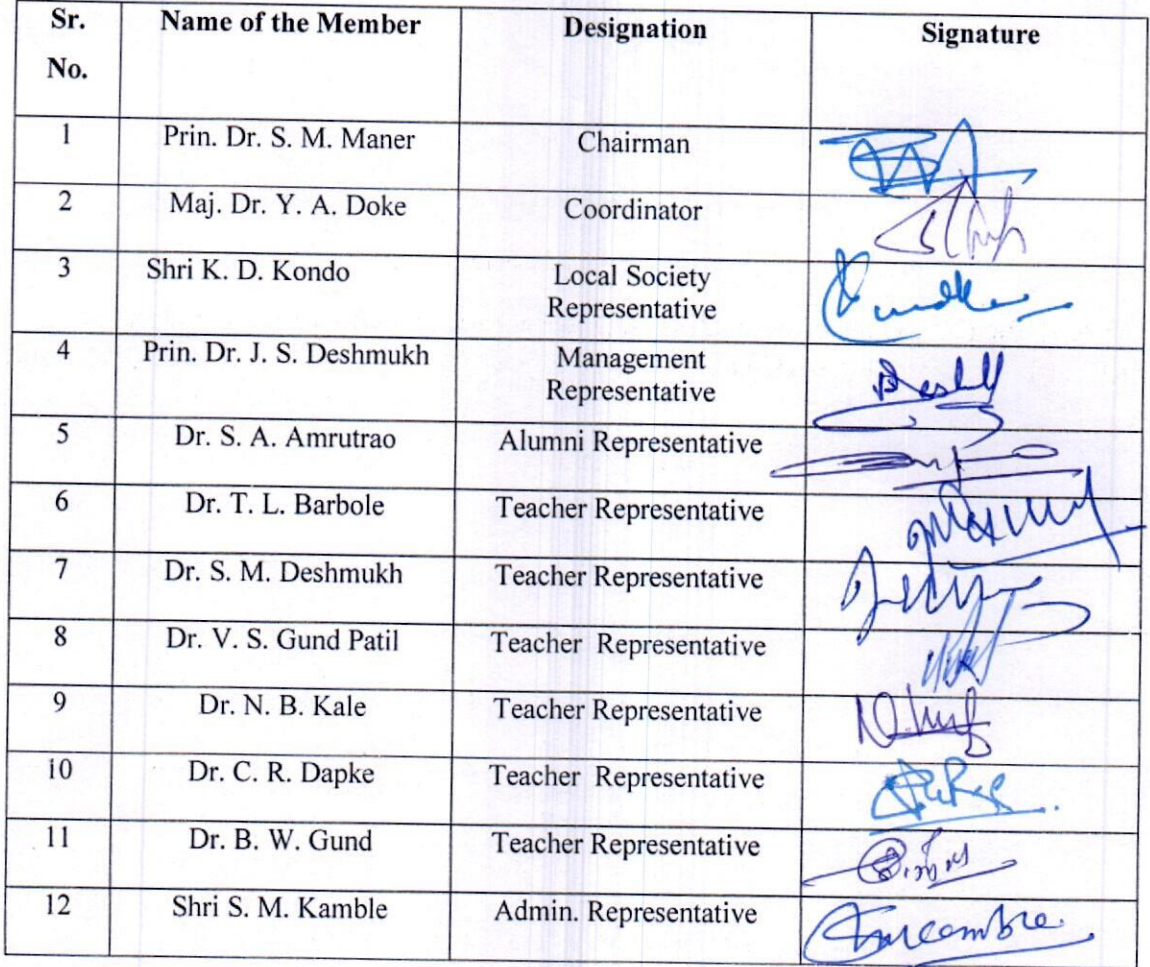 Sr. No. Name of the Member Designation Signature
1 Prin. Dr. S. M. Maner Chairman
2 Maj. Dr. Y. A. Doke Coordinator
3 Shri K. D. Kondo Local Society Representative
4 Prin. Dr. J. S. Deshmukh Management Representative
5 Dr. S. A. Amrutrao Alumni Representative
6 Dr. T. L. Barbole Teacher Representative
7 Dr. S. M. Deshmukh Teacher Representative
8 Dr. V. S. Gund Patil Teacher Representative
9 Dr. N. B. Kale Teacher Representative
10 Dr. C. R. Dapke Teacher Representative
11 Dr. B. W. Gund Teacher Representative
12 Shri S. M. Kamble Admin. Representative